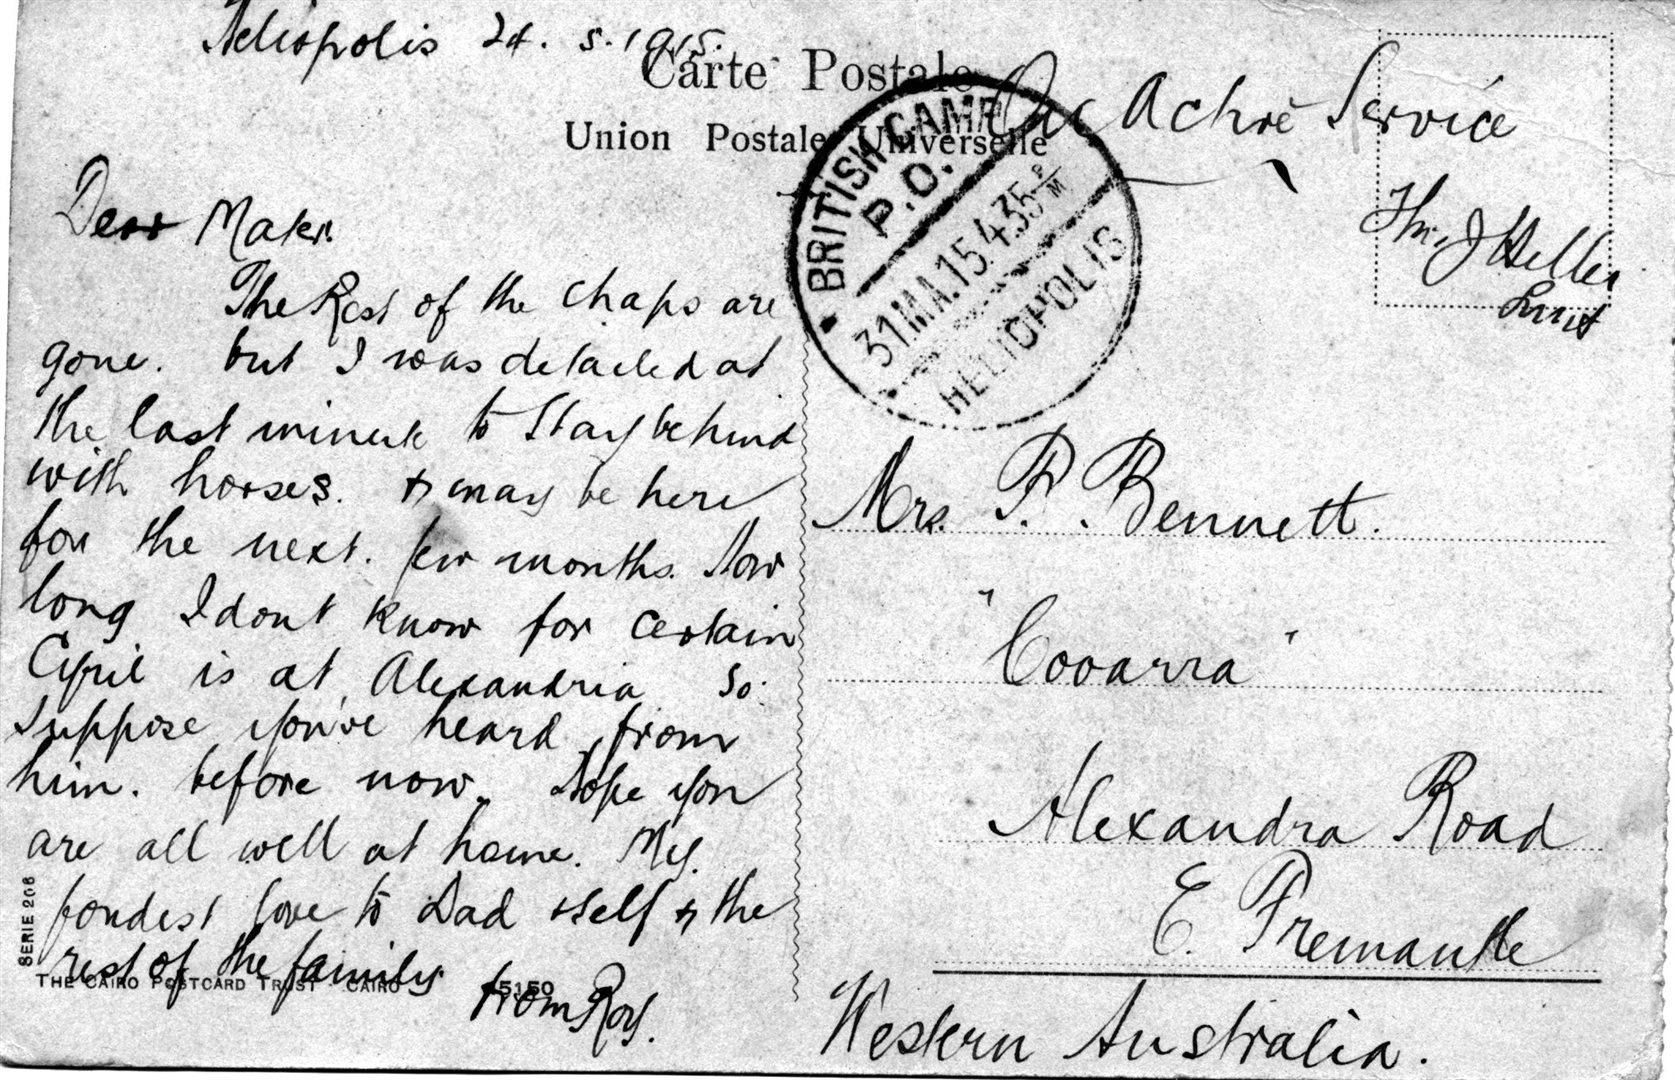 Heliopolis 24. 5. 1915.
Carte Postale
Union Postale Universelle
On Active Service
BRITISH CAMP
P.O.
31 MA.15.4.35 PM
HELIOPOLIS
Dear Mater.
The Rest of the chaps are
gone. but I was detailed at
the last minute to Stay behind
with horses. & may be here
for the next. few months. How
long I dont know for certain
Cyril is at Alexandria So
suppose you've heard from
him. before now. Hope you
are all well at home. My.
fondest love to Dad & self & the
rest of the family
from Roy.
SERIE 206
THE CAIRO POSTCARD TRUST CAIRO
Mrs. F. Bennett.
"Cooarra"
Alexandra Road
E. Fremantle
Western Australia.